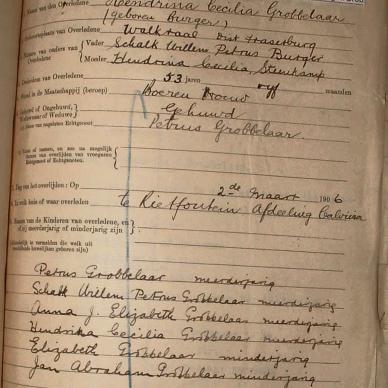 Naam van den Overledene Hendrina Cecilia Grobbelaar
(geboren Burger)
Geboorteplaats van Overledene Walkraal Dist Fraserburg
Namen van ouders van Overledene Vader Schalk Willem Petrus Burger
Moeder Hendrina Cecilia Steenkamp
Ouderdom van Overledene 53 jaren vyf maanden
Stand in de Maatschappij (beroep) Boeren Vrouw
Gehuwd of Ongehuwd, Weduwnaar of Weduwe Gehuwd
Petrus Grobbelaar
Dag van het overlijden: Op 2de Maart 1906
In welk huis of waar overleden te Rietfontein Afdeeling Calvinia
Namen van de Kinderen van overledene, en of zij meerderjarig of minderjarig zijn
Petrus Grobbelaar meerderjarig
Schalk Willem Petrus Grobbelaar meerderjarig
Anna J. Elizabeth Grobbelaar meerderjarig
Hendrika Cecilia Grobbelaar meerderjarig
Elizabeth Grobbelaar minderjarig
Jan Abraham Grobbelaar minderjarig